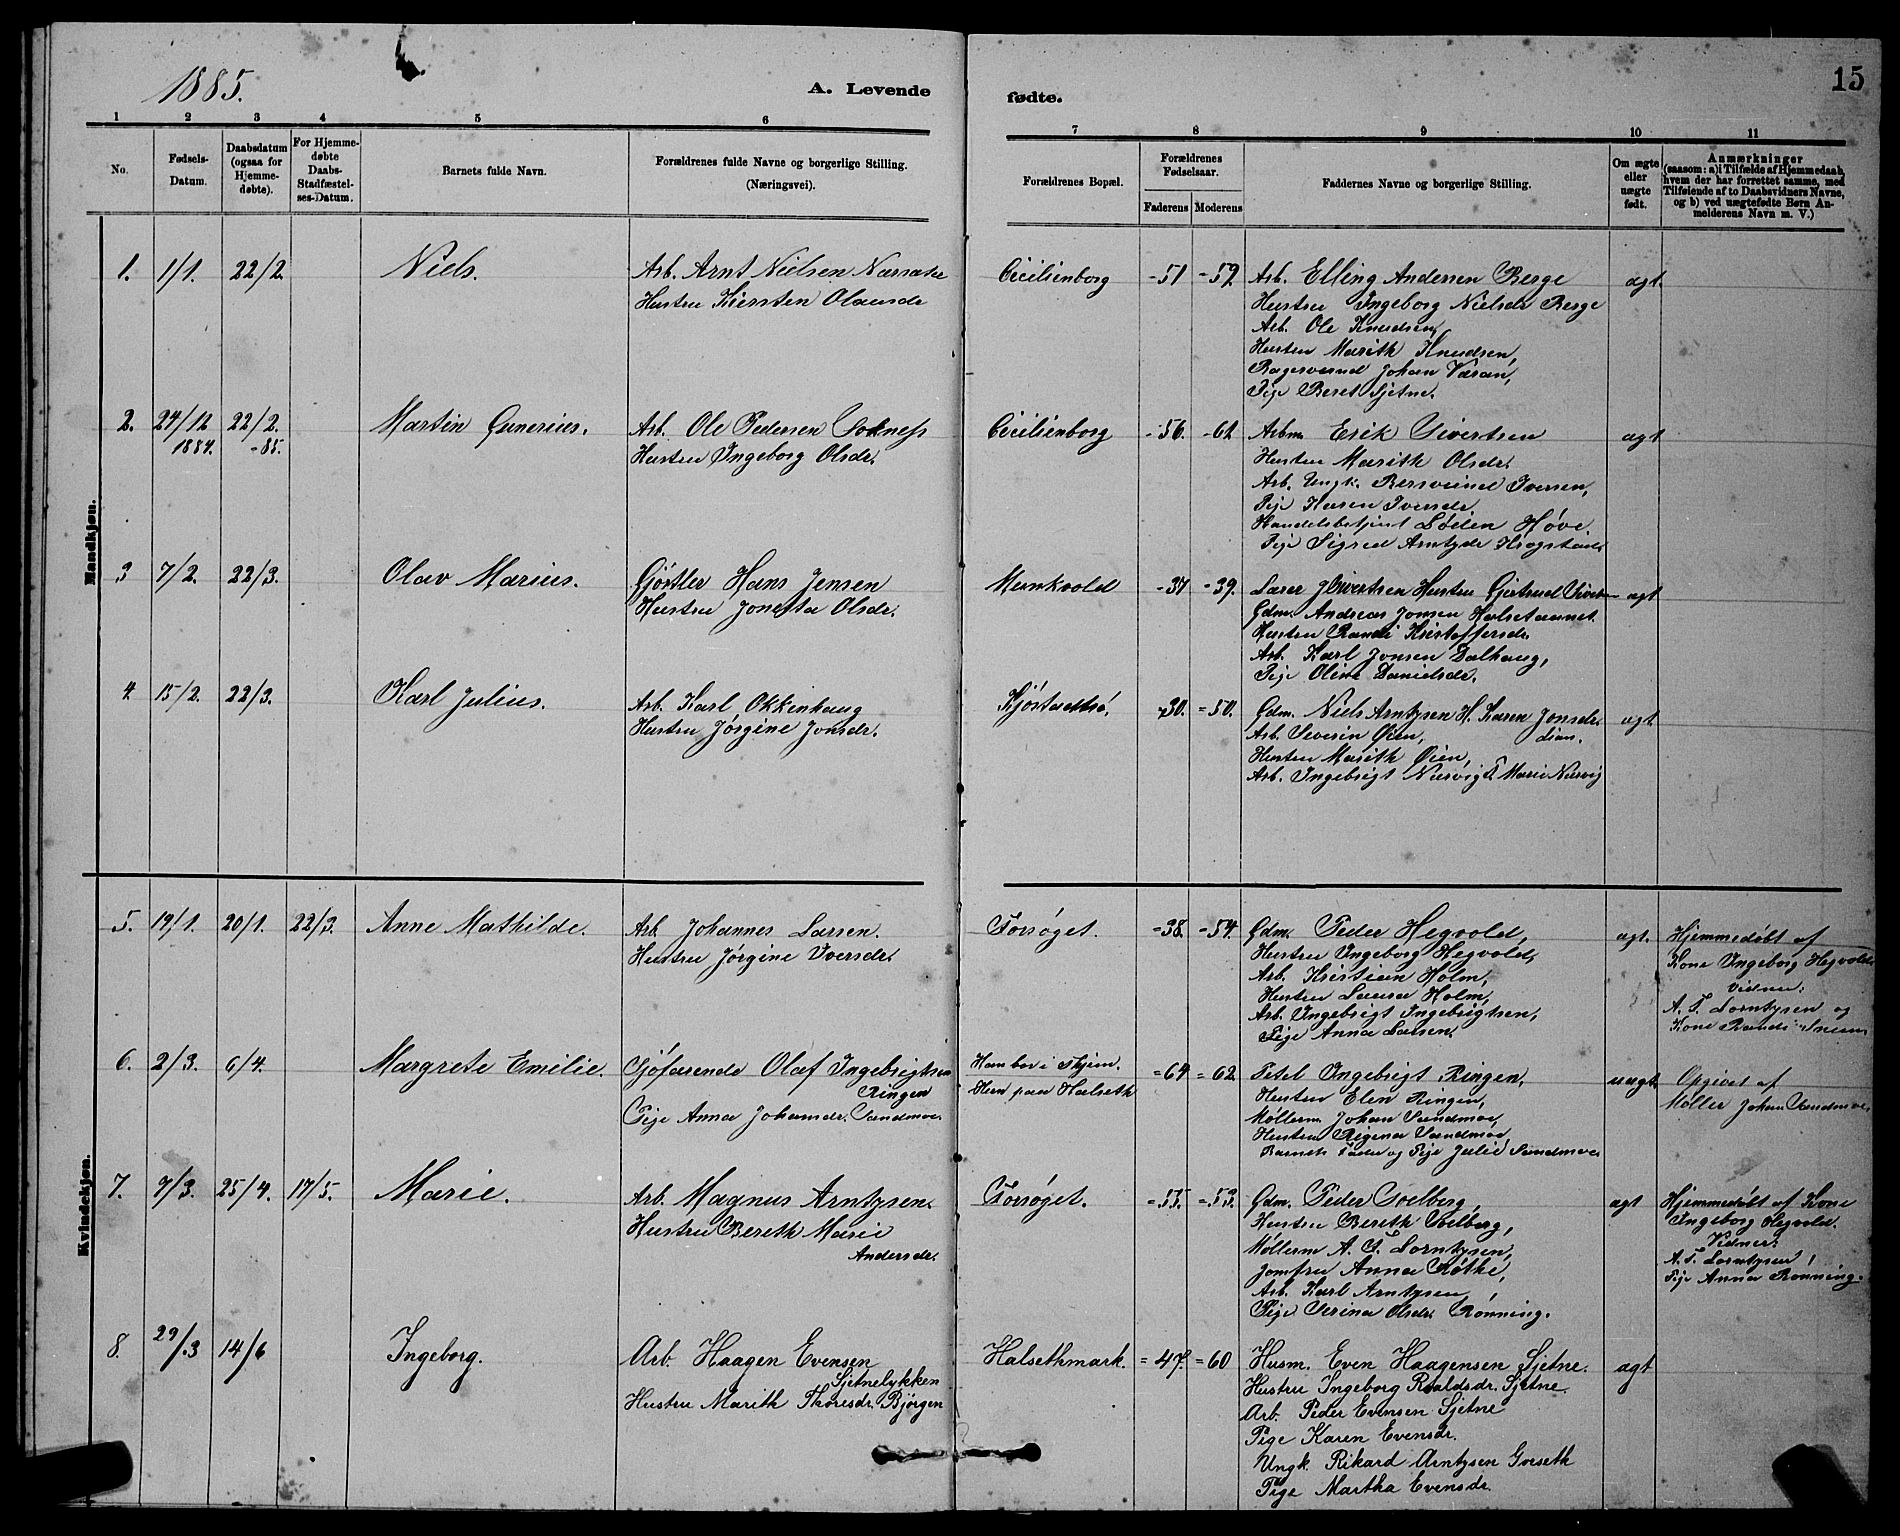 1885.
A. Levende
fødte.
15
1 2 3 4 5 6 7 8 9 10 11
No.
Fødsels-
Datum.
Daabsdatum
(ogsaa for
Hjemme-
døbte).
For Hjemme-
døbte
Daabs-
Stadfæstel-
ses-Datum.
Barnets fulde Navn.
Forældrenes fulde Navne og borgerlige Stilling.
(Næringsvei).
Forældrenes Bopæl.
Forældrenes
Fødselsaar.
Faderens Moderens
Faddernes Navne og borgerlige Stilling.
Om ægte
eller
uægte
født.
Anmærkninger
(saasom: a) i Tilfælde af Hjemmedaab,
hvem der har forrettet samme, med
Tilføiende af to Daabsvidners Navne,
og b) ved uægtefødte Børn An-
melderens Navn m. V.)
Mandkjøn.
1. 1/1. 22/2. Niels.
Arb. Arnt Nielsen
Hustru Kiersten
Cicilienborg =51 =59.
Arb. Elling Andersen Berge
Hustru Ingeborg Nielsdr Berge
Arb. Ole Knudsen,
Hustru Marith Knudsen,
Johan
Pige Beret Sjetne.
ægt.
2. 24/12 22/2. Martin Gunerius.
1884. -85.
Arb. Ole Pedersen
Hustru Ingeborg Olsdr.
Cicilienborg =56. =61.
Arbm. Erik Sivertsen
Hustru Marith Olsdr.
Arb. Ungk. Iversen,
Pige Karen Iversdr.
Handelsbetjent Høve
Pige Sigrid Arntzdr
ægt
3 7/2. 22/3. Olav Marius.
Gjørtler Hans Jensen
Hustru Olsdr.
Munkvold =39.
Lærer Sivertsen Hustru Gjertrud
Gdm. Andreas Jonsen
Hustru Randi Kristoffersdr.
Arb. Karl Jonsen Dalhaug,
Pige Oline Danielsdr.
ægt
4. 15/2. 22/3. Karl Julius.
Arb. Karl Okkenhaug
Hustru Jørgine Jonsdr.
=30. =50.
Gdm. Niels Arntzen H. Karen Jonsdr.
Arb. Severin Øien,
Hustru Marith Øien,
Arb. Ingebrigt
ægt
Kvindekjøn.
5. 19/1. 20/1. 22/3. Anne Mathilde.
Arb Johannes Larsen.
Hustru Jørgine Iversdr.
Forsøget. =38. =54.
Gdm. Peder Hegvold,
Hustru Ingeborg Hegvold,
Arb. Kristian Holm,
Hustru Laura Holm,
Arb. Ingebrigt Ingebrigtsen,
Pige Anna Larsen.
ægt.
Hjemmedøbt af
Kone Ingeborg Hegvold.
Vidner:
A. F. Lorntzen og
Kone Randi
6. 2/3. 6/4. Margrete Emilie.
Sjøfarende Olaf Ingebrigtsen
Ringen
Pige Anna Johansdr. Sandmoe
Han bor i
Hun paa Halseth
=64 =62.
Ingebrigt Ringen,
Hustru Elen Ringen,
Møllerm. Johan Sandmoe,
Hustru Regina Sandmoe,
Barnets Fader og Pige Julie Sandmoe
uægt
Opgivet af
Møller Johan Sandmoe
7. 9/3. 25/4. 17/5. Marie.
Arb. Magnus Arntzen.
Hustru Bereth Marie
Andersdr.
Forsøget. =55. =53.
Gdm. Peder Solberg,
Hustru Bereth Solberg,
Møllerm A. F. Lorntzen,
Jomfru Anna Røthe,
Arb. Karl Arntzen,
Pige Serina Olsdr. Rønning.
ægt
Hjemmedøbt af Kone
Ingeborg Hegvold.
Vidner:
A. F. Lorntzen,
Pige Anna Rønning.
8. 29/3 14/6 Ingeborg.
Arb. Haagen Evensen
Sjetnelykken
Hustru Marith Thoresdr. Bjørgen
Halsethmark. =47. =60
Husm. Even Haagensen Sjetne.
Hustru Ingeborg Roaldsdr. Sjetne
Arb. Peder Evensen Sjetne
Pige Karen Evensdr.
Ungk. Rikard Arntzen Gorseth
Pige Martha Evensdr.
ægt